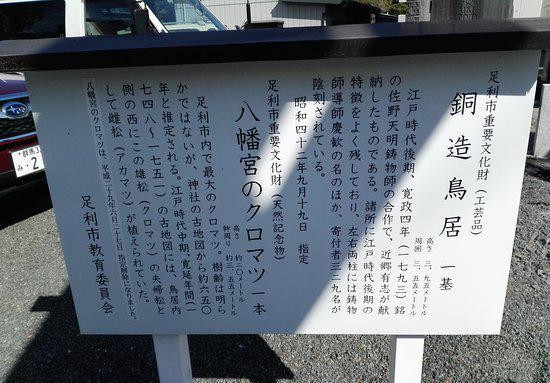 足利市重要文化財（工芸品）
銅造鳥居 一基
高さ 三、九五メートル
周囲 三、五五メートル
江戸時代後期、寛政四年（一七九三）銘
の佐野天明鋳物師の合作で、近郷有志が献
納したものである。諸所に江戸時代後期の
特徴をよく残しており、左右両柱には鋳物
師導師慶歓の名のほか、寄付者三十九名が
陰刻されている。
昭和四十二年九月十九日 指定
足利市重要文化財（天然記念物）
八幡宮のクロマツ 一本
高さ 約二〇メートル
幹周り 約三、五五メートル
足利市内で最大のクロマツ。樹齢は明ら
かではないが、神社の古地図から約六五〇
年と推定される。江戸時代中期、寛延年間（一
七四八～一七五一）の古地図には、鳥居内
側の西にこの雄松（クロマツ）の夫婦松と
して雌松（アカマツ）が植えられていた。
八幡宮のクロマツは、平成二十九年六月二十七日 指定解除になりました。
足利市教育委員会